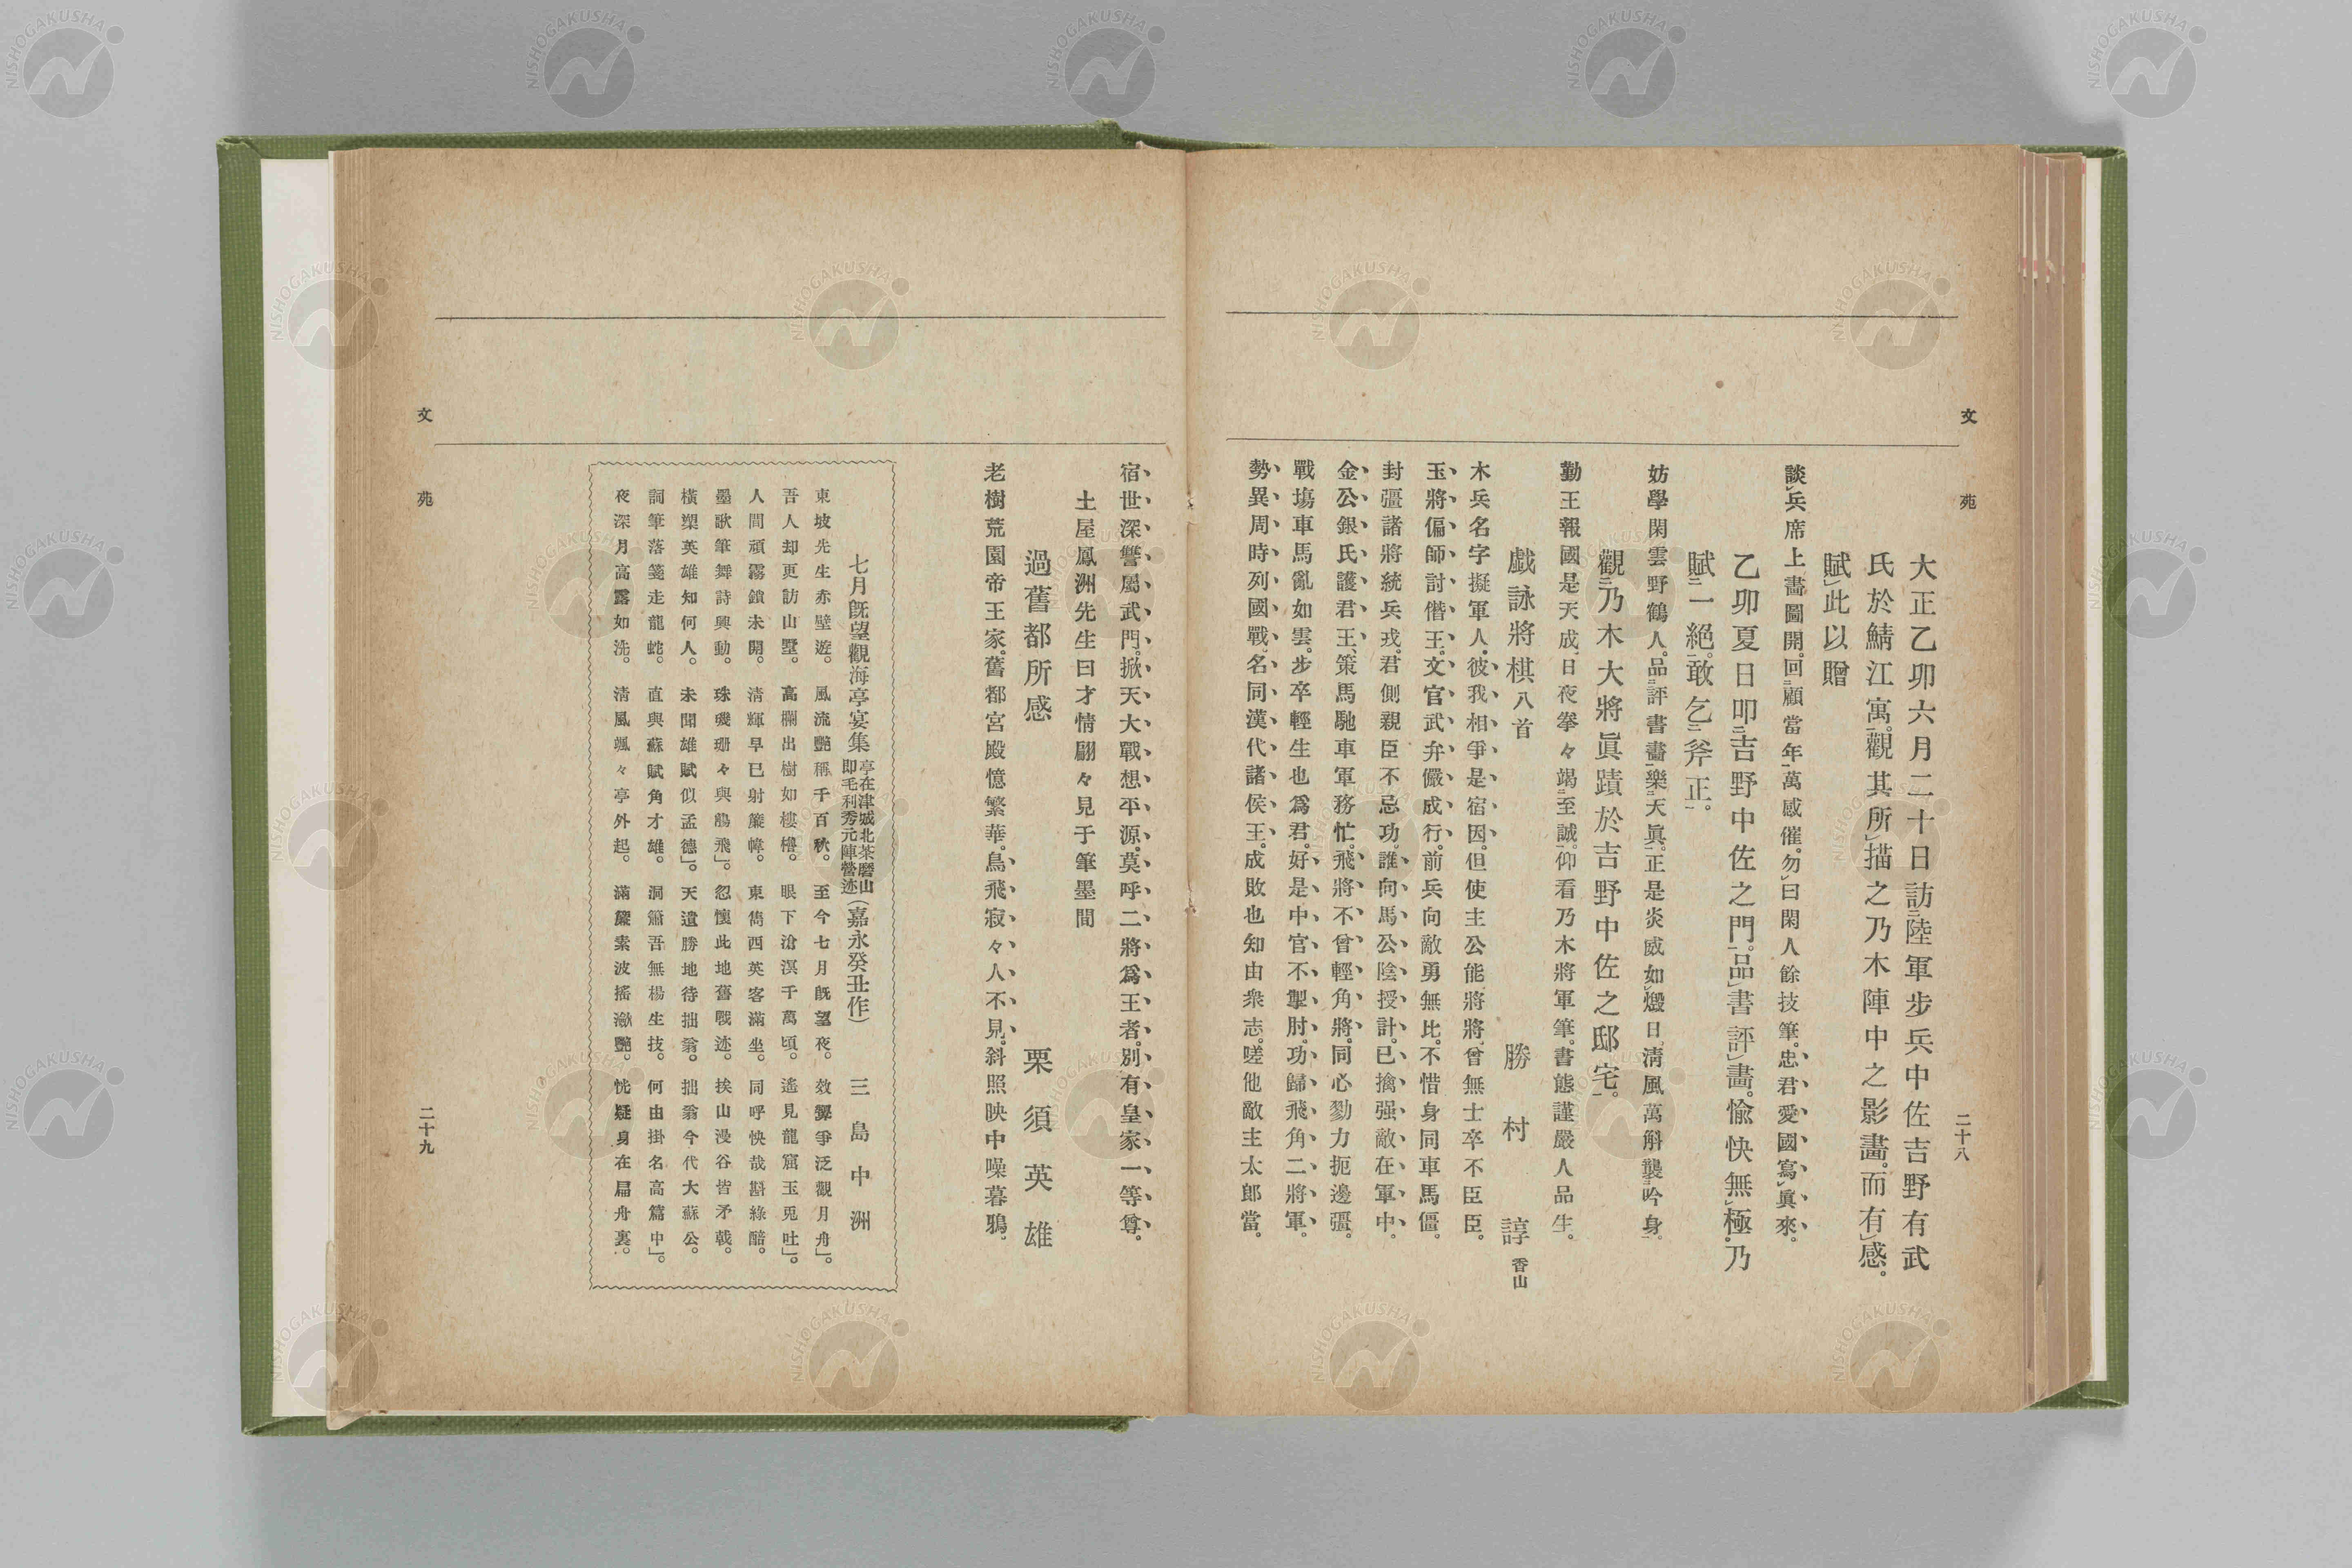 文苑
二十八
大正乙卯六月二十日訪二陸軍步兵中佐吉野有武
氏於鯖江寓一。觀其所レ描之乃木陣中之影畫。而有レ感。
賦レ此以贈
談レ兵席上畫圖開。回二顧當年一萬感催。勿レ曰閑人餘技筆。忠君愛國寫レ眞來。
乙卯夏日叩二吉野中佐之門一。品レ書評レ畫。愉快無レ極。乃
賦二一絕一。敢乞二斧正一。
妨學閑雲野鶴人。品二評書畫一樂二天眞一。正是炎威如レ燬日。淸風萬斛襲二吟身一。
觀二乃木大將眞蹟於吉野中佐之邸宅一。
勤王報國是天成。日夜拳々竭二至誠一。仰看乃木將軍筆。書態謹嚴人品生。
戯詠將棋八首 勝村諄香山
木兵名字擬軍人。彼我相爭是宿因。但使主公能將將。曾無士卒不臣臣。
玉將偏師討僭王。文官武弁儼成行。前兵向敵勇無比。不惜身同車馬僵。
封彊諸將統兵戎。君側親臣不忌功。誰向馬公陰授計。已擒强敵在軍中。
金公銀氏護君王。策馬馳車軍務忙。飛將不曾輕角將。同心勠力扼邊彊。
戰塲車馬亂如雲。步卒輕生也爲君。好是中官不掣肘。功歸飛角二將軍。
勢異周時列國戰。名同漢代諸侯王。成敗也知由衆志。嗟他敵主太郎當。
宿世深讐屬武門。掀天大戰想平源。莫呼二將爲王者。別有皇家一等尊。
土屋鳳洲先生曰才情翩々見于筆墨間
過舊都所感 栗須英雄
老樹荒園帝王家。舊都宮殿憶繁華。鳥飛寂々人不見。斜照映中噪暮鴉。
七月旣望觀海亭宴集 亭在津城北茶磨山
即毛利秀元陣營迹 （嘉永癸丑作） 三島中洲
東坡先生赤壁遊。風流艷稱千百秋。至今七月旣望夜。效顰爭泛觀月舟」。
吾人却更訪山墅。高欄出樹如樓櫓。眼下滄溟千萬頃。遙見龍窟玉兎吐」。
人間頑霧鎖未開。淸輝早已射簾幃。東儁西英客滿坐。同呼快哉斟綠醅。
墨歌筆舞詩興動。珠璣珊々與觴飛」。忽懷此地舊戰迹。挨山漫谷皆矛戟。
橫槊英雄知何人。未聞雄賦似孟德」。天遺勝地待拙翁。拙翁今代大蘇公。
詞筆落箋走龍蛇。直與蘇賦角才雄。洞簫吾無楊生技。何由掛名高篇中」。
夜深月高露如洗。淸風颯々亭外起。滿簾素波搖瀲艷。恍疑身在扁舟裏。
文苑
二十九